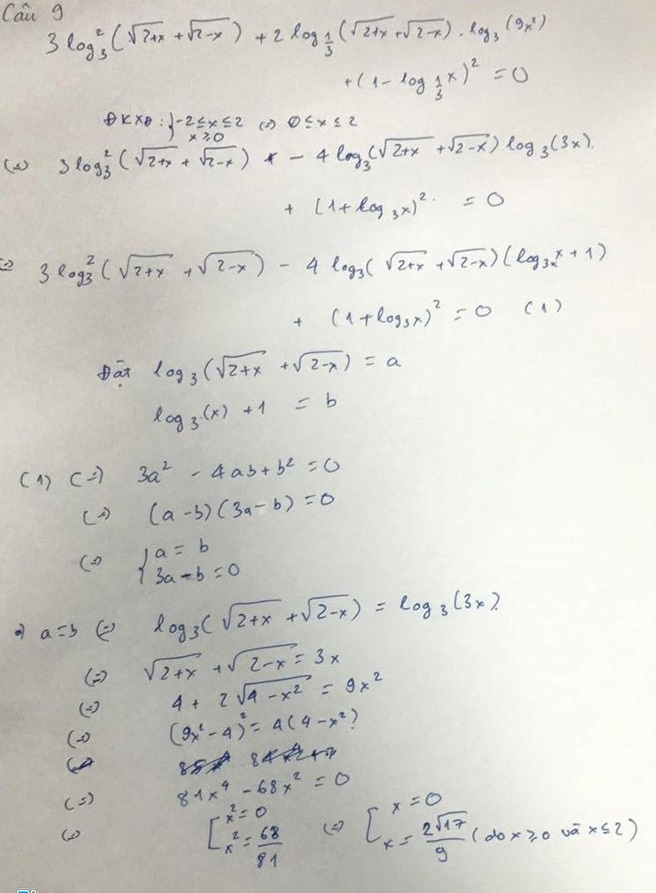 Câu 9
3 log₃² (√(2+x) + √(2-x)) + 2 log_{1/3} (√(2+x) + √(2-x)) . log₃ (9x²)
+ (1 - log_{1/3} x)² = 0
ĐKXĐ: { -2 ≤ x ≤ 2 (=) 0 ≤ x ≤ 2
x ≥ 0
(=) 3 log₃² (√(2+x) + √(2-x)) - 4 log₃ (√(2+x) + √(2-x)) log₃ (3x).
+ (1 + log₃x)² = 0
(=) 3 log₃² (√(2+x) + √(2-x)) - 4 log₃ (√(2+x) + √(2-x)) (log₃x + 1)
+ (1 + log₃x)² = 0 (1)
Đặt log₃ (√(2+x) + √(2-x)) = a
log₃ (x) + 1 = b
(1) (=) 3a² - 4ab + b² = 0
(=) (a - b) (3a - b) = 0
(=) { a = b
3a - b = 0
a = b (=) log₃ (√(2+x) + √(2-x)) = log₃ (3x)
(=) √(2+x) + √(2-x) = 3x
(=) 4 + 2√(4 - x²) = 9x²
(=) (9x² - 4)² = 4(4 - x²)
(=) 81x⁴ - 68x² = 0
(=) [ x² = 0 (=) [ x = 0
x² = 68/81 x = 2√17/9 (do x ≥ 0 và x ≤ 2)